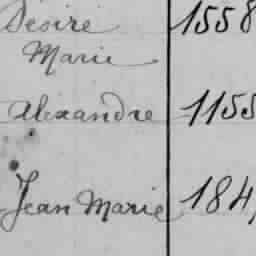 Desire 1558
Marie
Alexandre 1155
Jean Marie 184